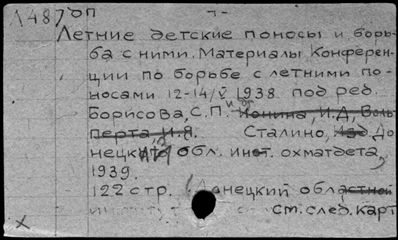 1487 оп
Летние детские поносы и борь-
ба с ними. Материалы Конферен-
ции по борьбе с летними по-
носами 12-14/V 1938. под ред.
Борисова, С.П. и др. Ионина, И.Д, Воль
перта И.Я. Сталино, Изд. До
нецкий обл. инст. охматдета,
1939.
122 стр. (Донецкий областной
см. след. карт